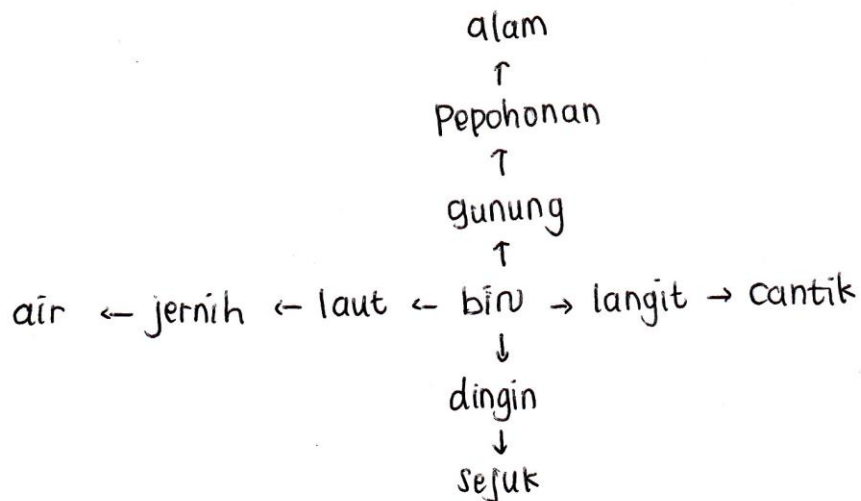 alam
↑
Pepohonan
↑
gunung
↑
air ← jernih ← laut ← biru → langit → cantik
↓
dingin
↓
sejuk